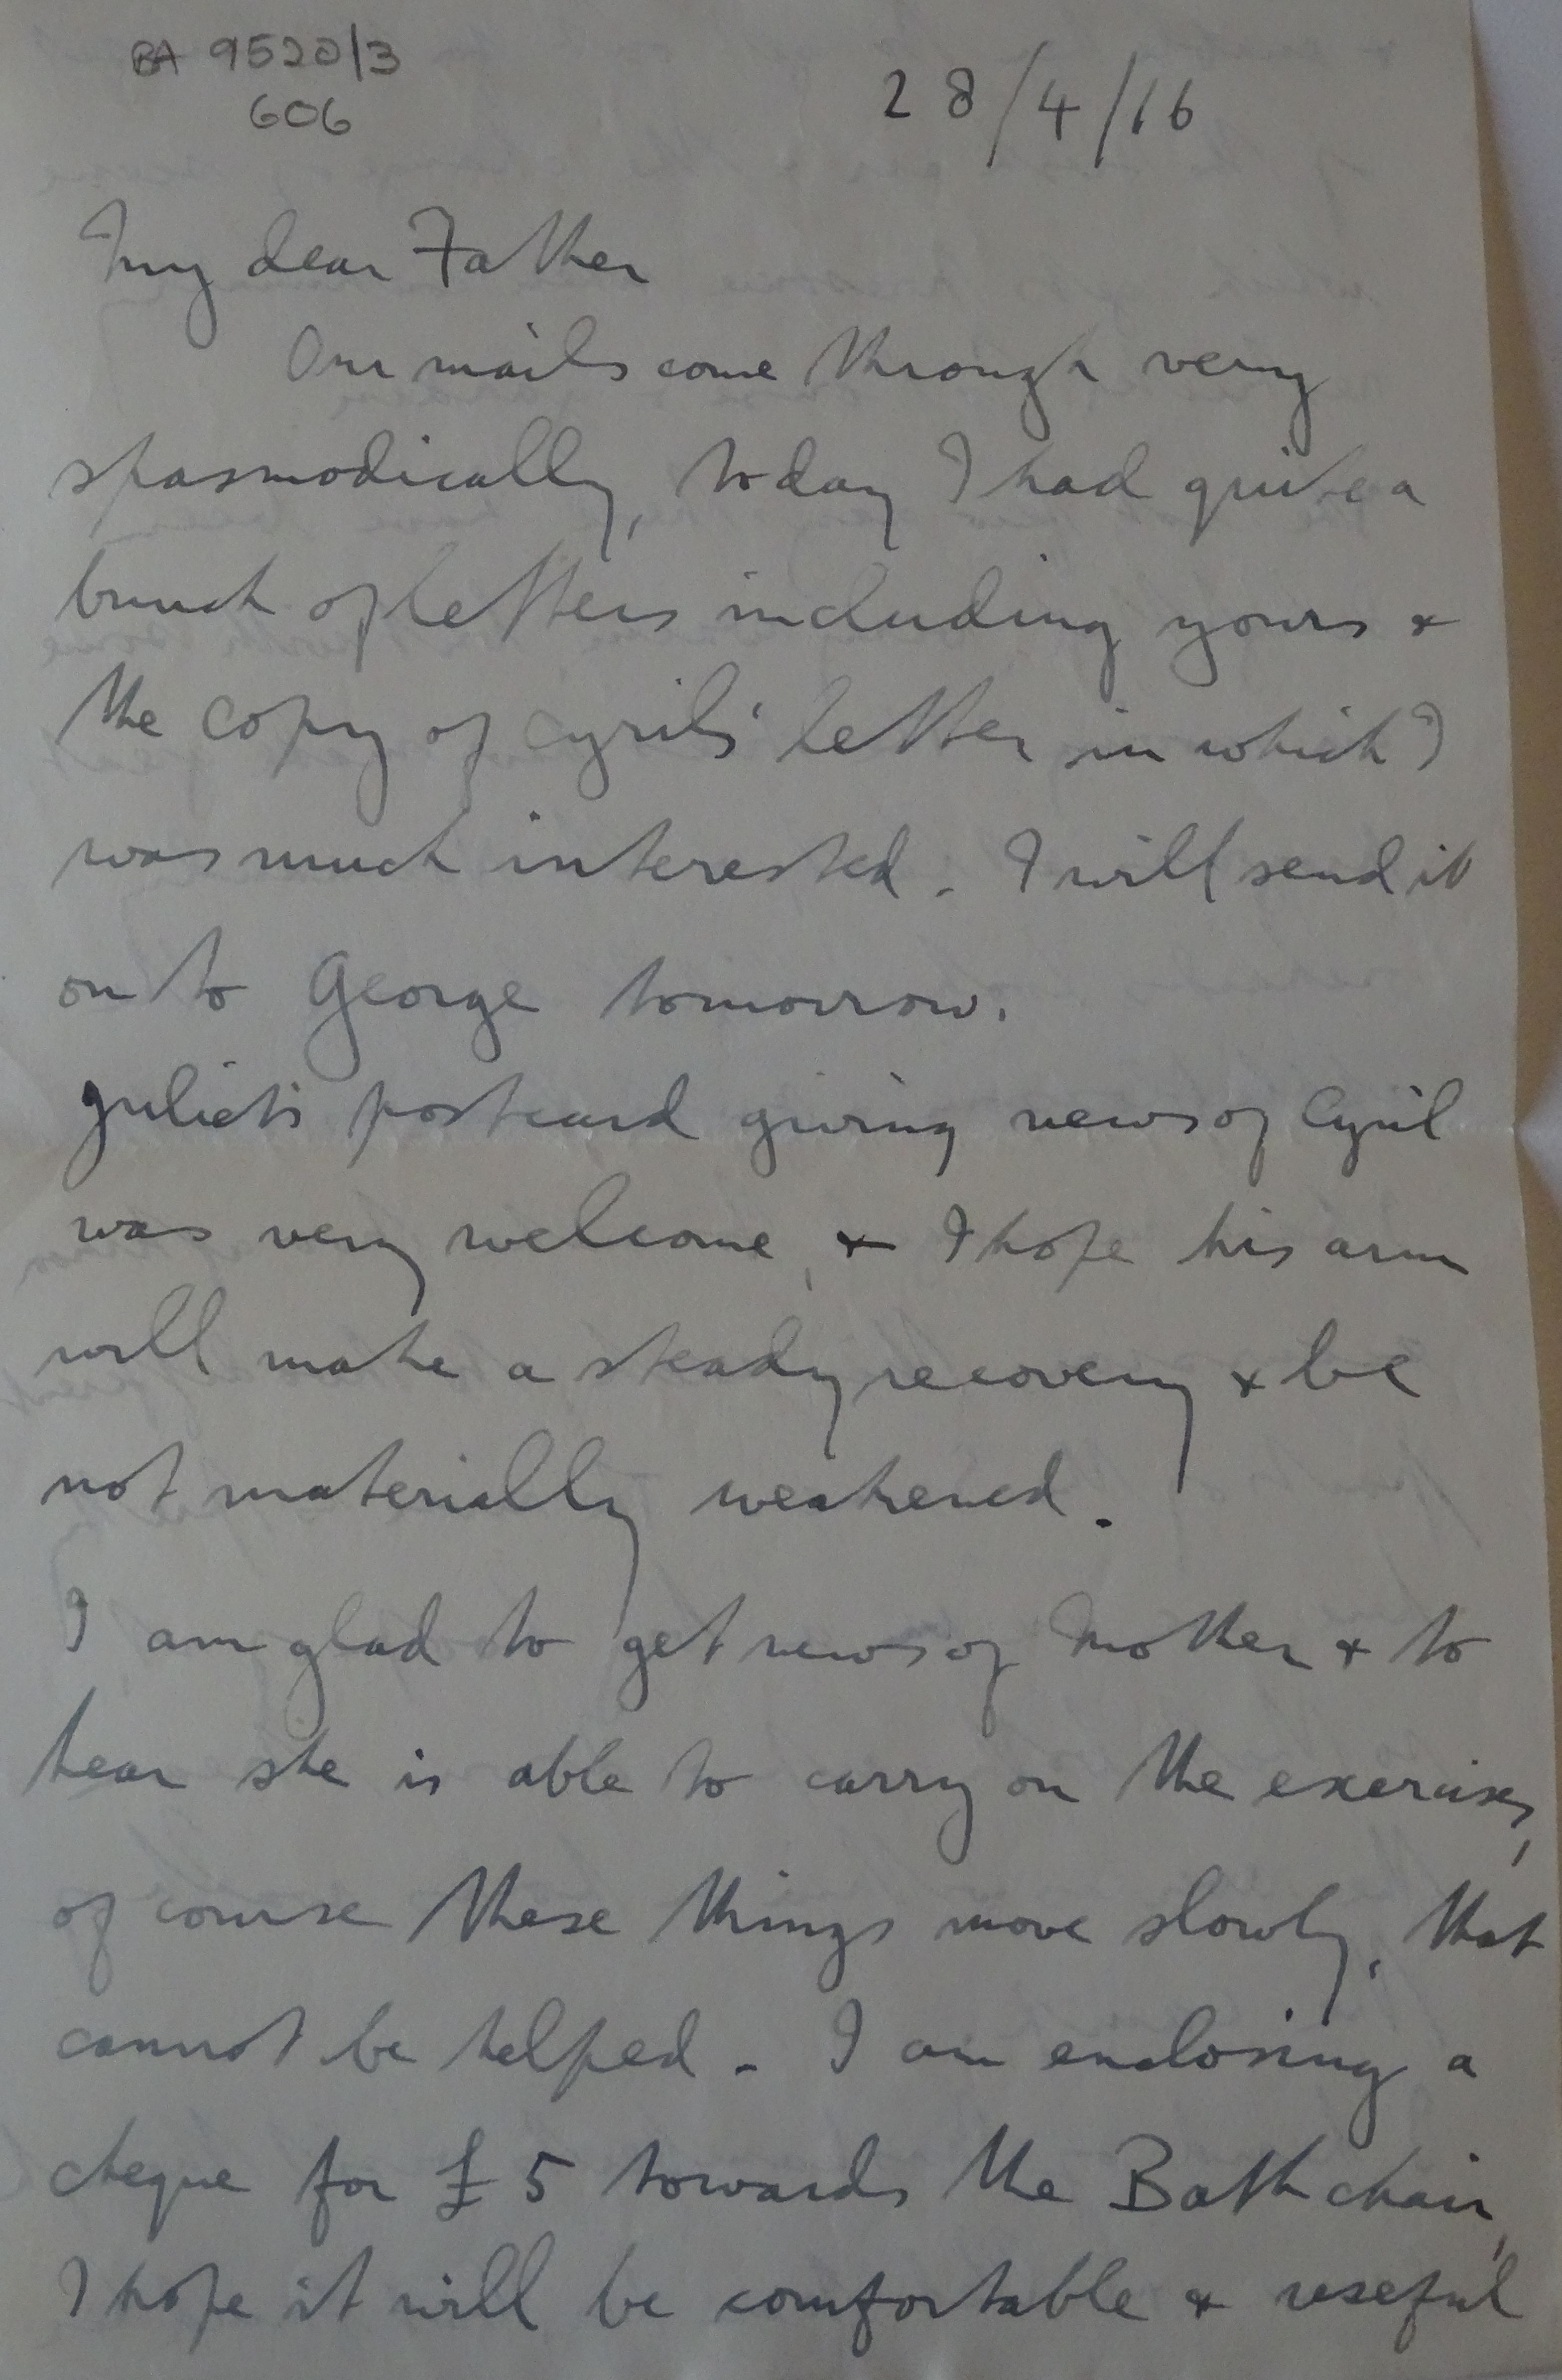 BA 9520/3
606
28/4/16
My dear Father
Our mails come through very
spasmodically, today I had quite a
bunch of letters including yours &
the copy of Cyril's letter in which I
was much interested. I will send it
on to George tomorrow.
Juliet's postcard giving news of Cyril
was very welcome, & I hope his arm
will make a steady recovery & be
not materially weakened.
I am glad to get news of Mother & to
hear she is able to carry on the exercises,
of course these things move slowly, that
cannot be helped. I am enclosing a
cheque for £5 towards the Bath chair,
I hope it will be comfortable & useful